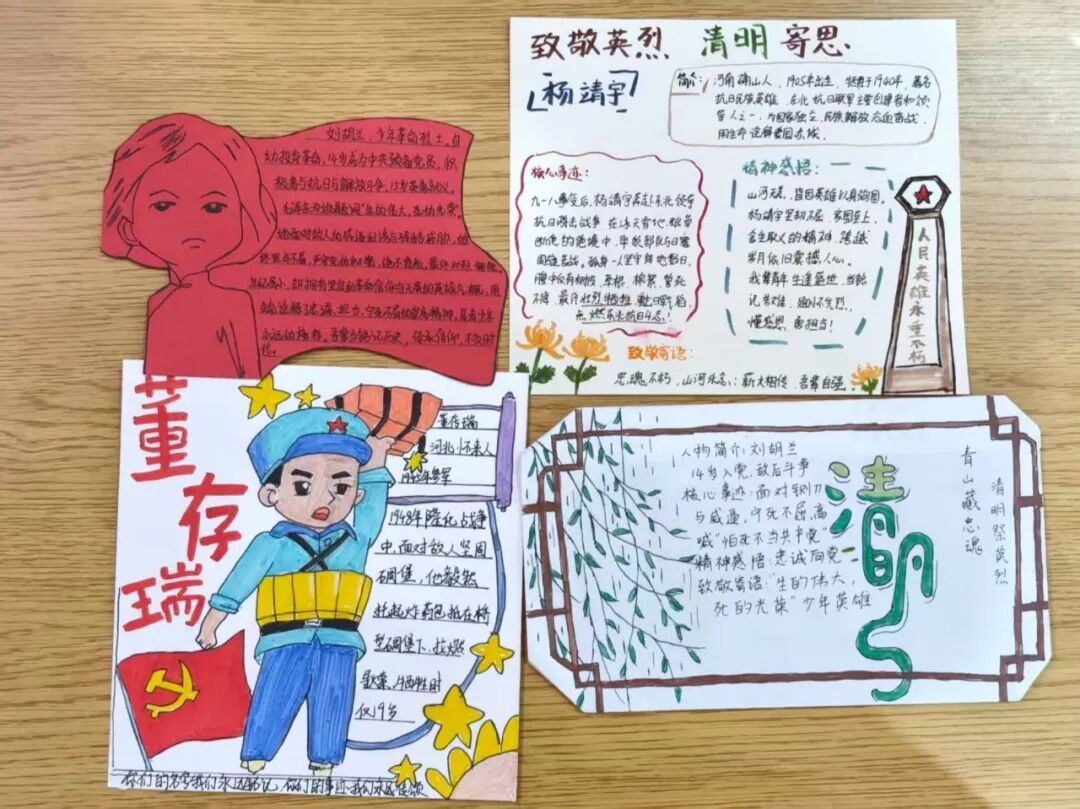 刘胡兰，少年革命烈士。自
幼投身革命，14岁成为中共预备党员，积
极参与抗日与解放斗争，15岁英勇就义。
毛泽东为她题词"生的伟大，死的光荣"
她面对敌人的
终坚贞不屈，
年纪虽小，却拥有坚定的革命信仰与无畏的英雄气概，用
永远的榜样。吾辈当铭记历史，传承信仰，不负时
代。
致敬英烈 清明寄思
杨靖宇
简介：河南确山人，1905年出生，牺牲于1940年，著名
抗日民族英雄，东北抗日联军主要创建者和领
导人之一，为国家独立、民族解放浴血奋战，
用生命诠释爱国赤诚。
核心事迹：
九一八事变后，杨靖宇奔赴东北领导
抗日游击战争，在冰天雪地、粮草
断绝的绝境中，率领部队与日寇
周旋苦战。孤身一人坚守阵地数日，
腹中仅有树皮、草根、棉絮，誓死
不降，最终壮烈牺牲，
点燃东北抗日斗志！
精神感悟：
山河无恙，皆因英雄以身殉国。
杨靖宇坚韧不屈、家国至上、
舍生取义的精神，跨越
岁月依旧震撼人心。
我辈青年生逢盛世，当铭
记英雄，缅怀先烈，
懂感恩，勇担当！
人民英雄永垂不朽
致敬寄语：
忠魂不朽，山河永念；薪火相传，吾辈自强
董存瑞
董存瑞
河北怀来人
1945年参军
1948年隆化战争
中，面对敌人坚固
碉堡，他毅然
托起炸药包抵在桥
型碉堡下，拉燃
牺牲时
仅19岁
你们的名字我们永远铭记，你们的事迹我们永远传颂
人物简介：刘胡兰
14岁入党，敌后斗争
核心事迹：面对铡刀
与威逼，宁死不屈，高
喊"怕死不当共产党"
精神感悟：忠诚向党
致敬寄语："生的伟大，
死的光荣"少年英雄
清明
青山藏忠魂
清明祭英烈